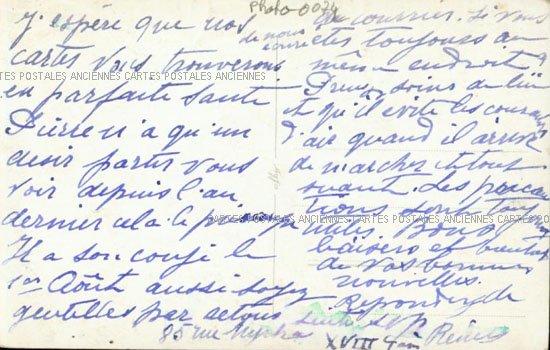 Photo 0024
J'espère que nos
cartes vous trouverons
en parfaite santé
Pierre n'a qu'un
desir partir vous
voir depuis l'an
dernier cela le
Il a son congé le
1er Août aussi soyez
gentilles par retour
85 rue
de nous
du courrier. Si vous
êtes toujours au
même endroit
Prenez soins de lui
et qu'il évite les courants
d'air quand il arrive
de marcher et tout
suant. Les précau
tions sont tous
utiles. Bons
baisers et
de vos bonnes
nouvelles.
Répondez de
suite svp
XVIII
CARTES POSTALES ANCIENNES CARTES POSTALES ANCIENNES
CARTES POSTALES ANCIENNES CARTES POSTALES ANCIENNES